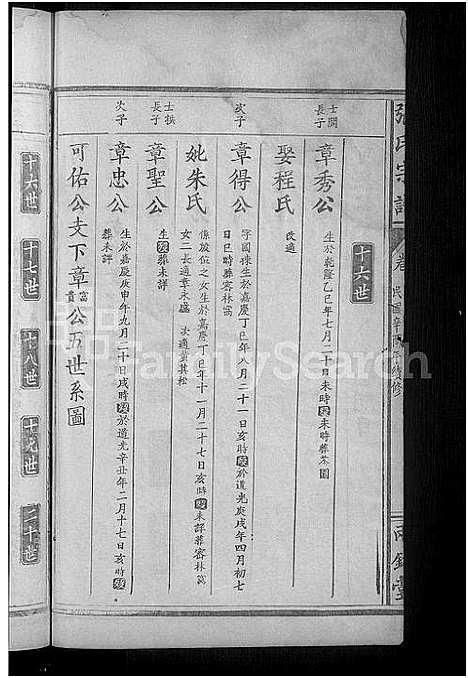 張氏宗譜
卷
民國辛酉年續修
十六世
士開
長子
章秀公
生於乾隆乙巳年七月二十日未時歿未時葬茶園
娶程氏
改適
次子
章得公
字國球生於嘉慶丁巳年八月二十一日亥時歿於道光庚戌年四月初七
日巳時葬密林窩
妣朱氏
係啟位之女生於嘉慶丁巳年十一月二十七日亥時歿未詳葬密林窩
女二長適章永盛 次適黃其松
士拱
長子
章聖公
生歿葬未詳
次子
章忠公
生於嘉慶庚申年九月二十日戌時歿於道光辛丑年二月十七日亥時歿
葬未詳
可佑公支下章富貴公五世系圖
十六世
十七世
十八世
十九世
二十世
FamilySearch